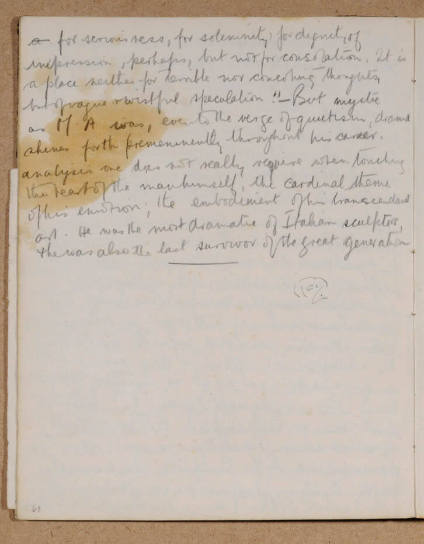 a for seriousness, for solemnity, for dignity, of
impression, perhaps, but not for consolation. It is
a place neither for terrible nor consoling thoughts,
but of vague & wistful speculation". But mystic
as M A was, even to the verge of quietism, drama
shines forth preeminently throughout his career.
analysis one does not really require when touching
the heart of the man himself, the cardinal theme
of his emotion; the embodiment of his transcendant
art. He was the most dramatic of Italian sculptors,
& he was also the last survivor of the great generation
61